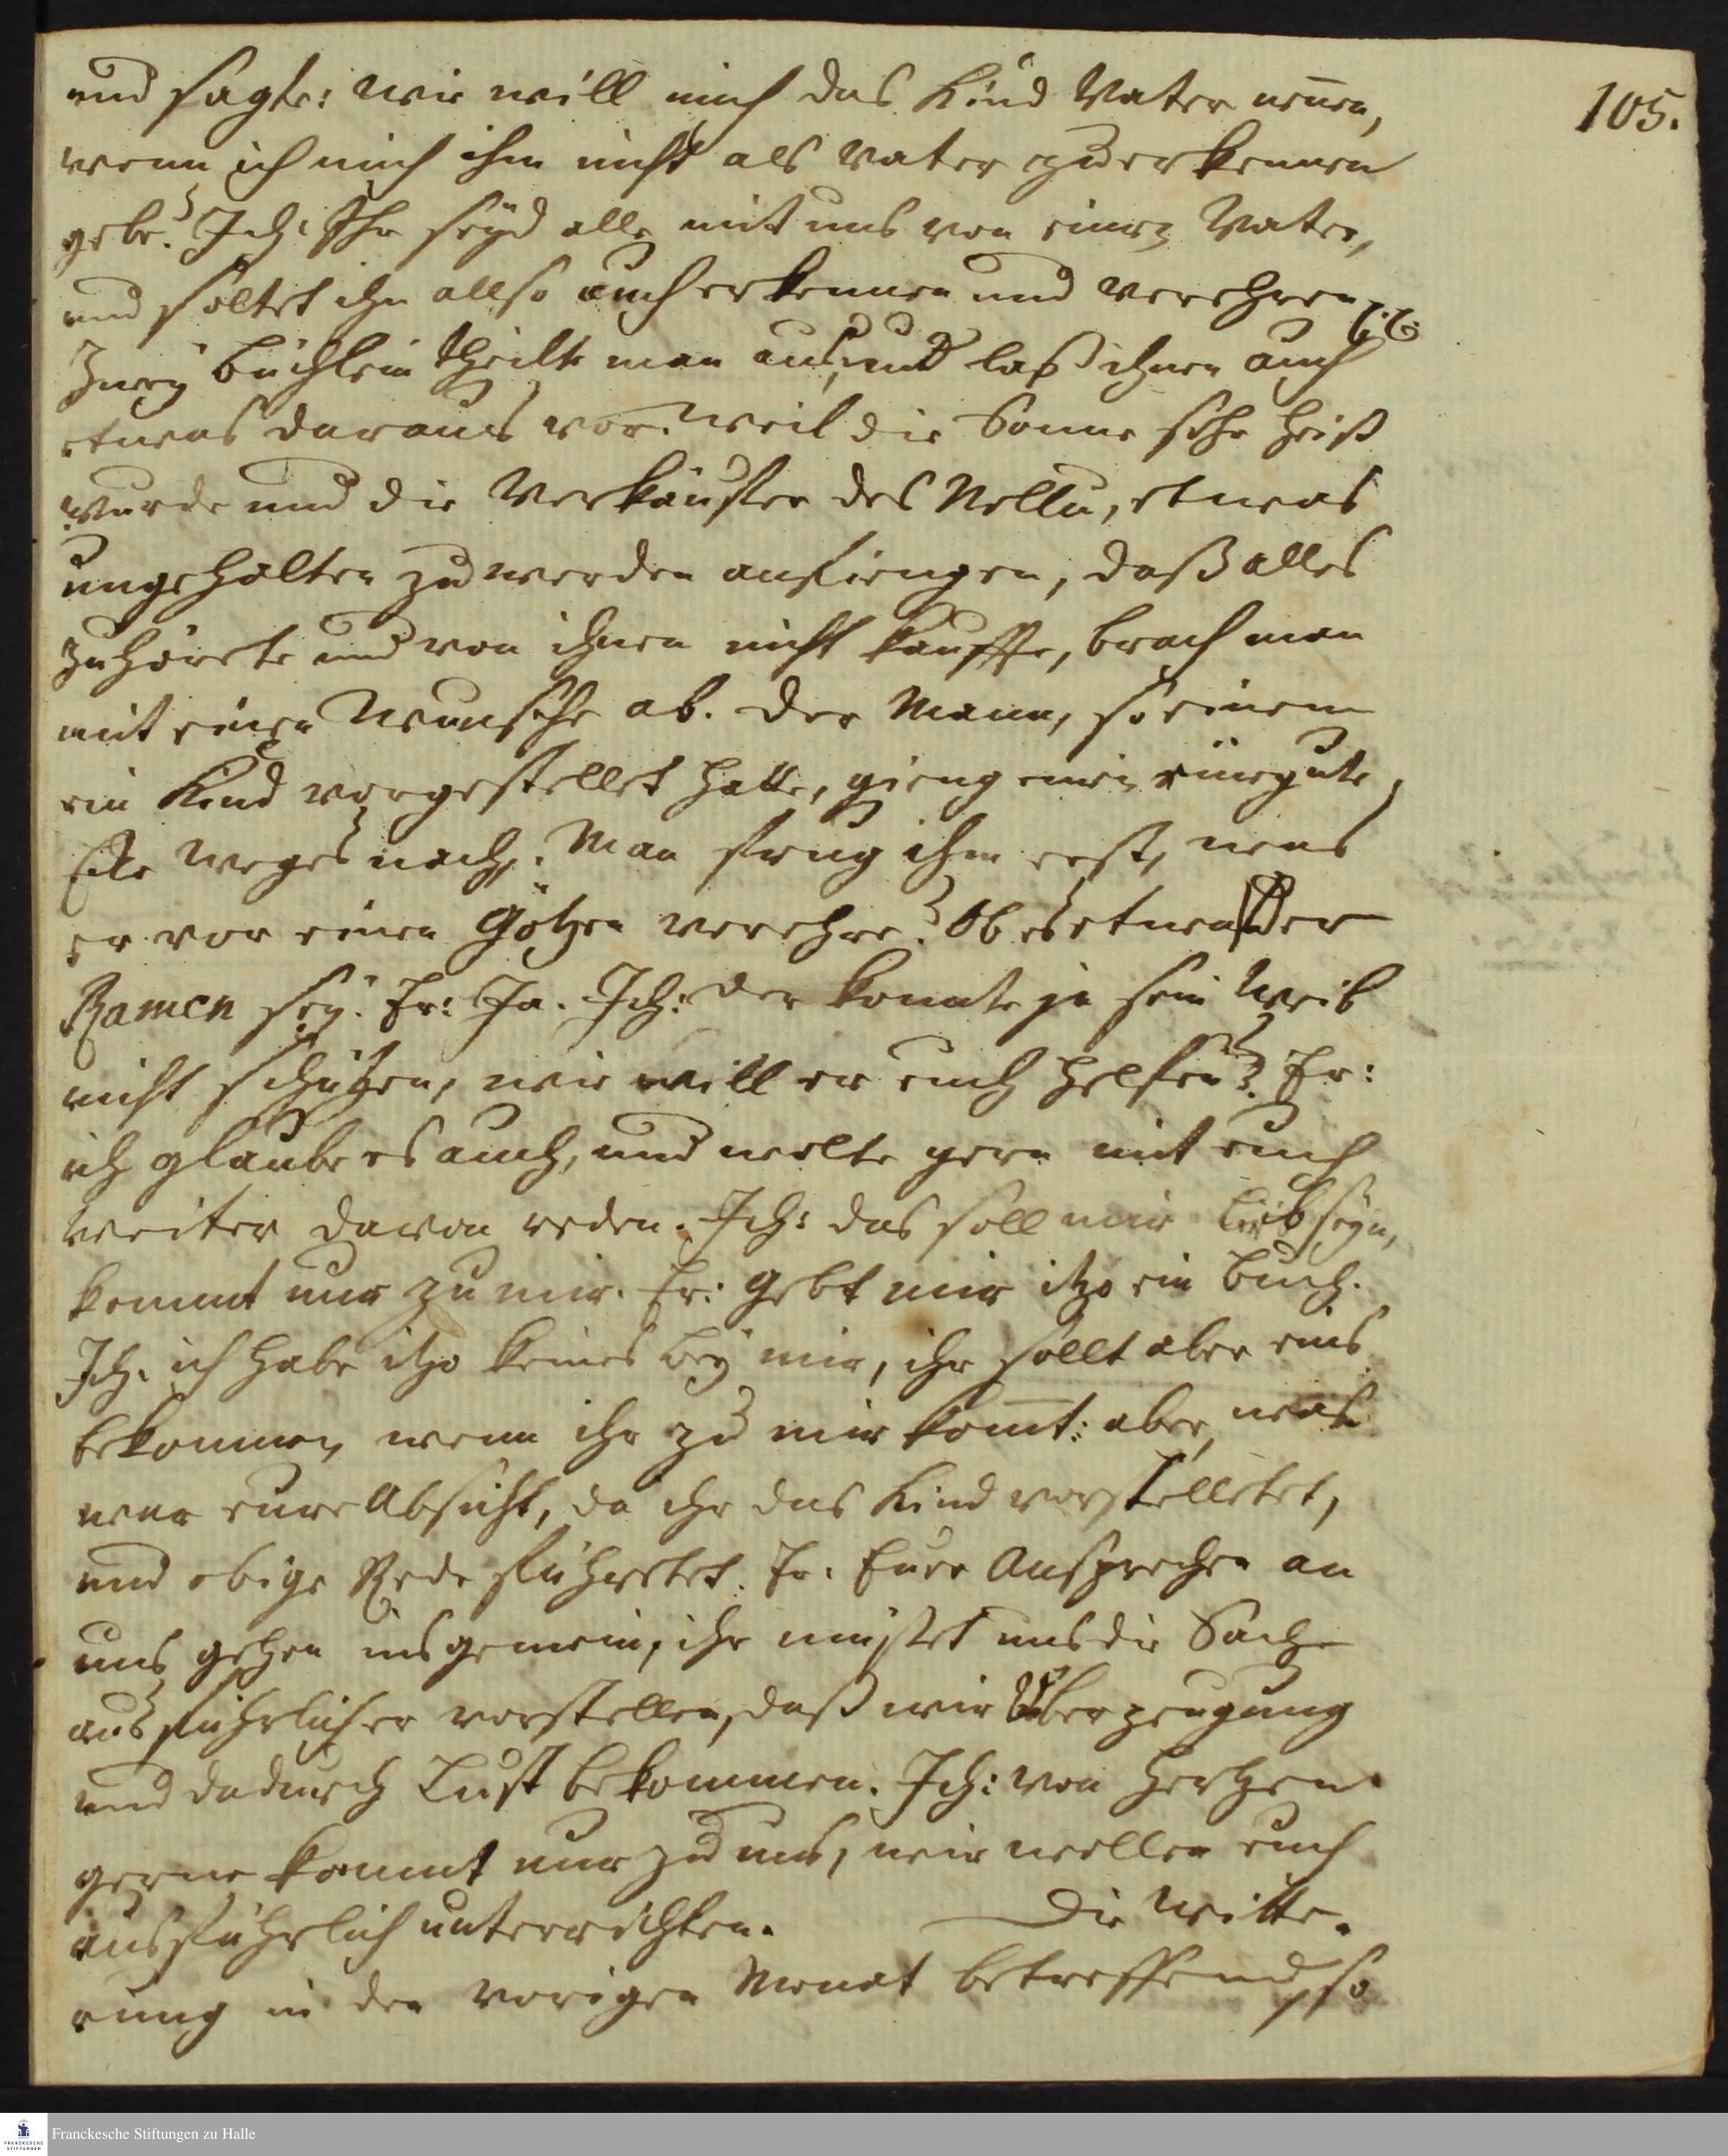 105.
und sagte: wie will mich das Kind Vater nen̄en,
wenn ich mich ihm nicht als Vater zu erkennen
gebe? Ich: Ihr seyd alle mit uns von einem Vater,
und soltet ihn allso auch erkennen und verehren pp.
Zwey büchlein theilte man aus, und laß ihnen auch
etwas daraus vor. Weil die Sonne sehr heiß
wurde und die Verkäuffer des Nellu, etwas
ungehalten zu werden anfiengen, daß alles
zuhörete und von ihnen nicht kauffte, brach man
mit einem Wunsche ab. Der Mann, so einem
ein Kind vorgestellet hatte, gieng mir eine gute
Ecke Weges nach. Man frug ihm erst, was
er vor einen Götzen verehre? Ob es etwa der
Ramen sey. Er: Ja. Ich: der konnte ja sein Weib
nicht schützen, wie will er euch helfen? Er:
ich glaube es auch, und wolte gern mit euch
weiter davon reden. Ich: das soll mir lieb seyn,
kommt nur zu mir. Er: gebt mir itzo ein Buch.
Ich: ich habe itzo keines bey mir, ihr sollt aber eins
bekommen, wenn ihr zu mir kom̄t: aber was
war eure Absicht, da ihr das Kind vorstelletet,
und obige Rede führetet. Er: Eure Ansprachen an
uns gehen insgemein, ihr müsset uns die Sache
ausführlicher vorstellen, daß wir Überzeugung
und dadurch Lust bekommen. Ich: von Hertzen
gerne kommt nur zu uns, wir wollen euch
ausführlich unterrichten. Die Witte-
rung in den vorigen Monat betreffend, so
Franckesche Stiftungen zu Halle